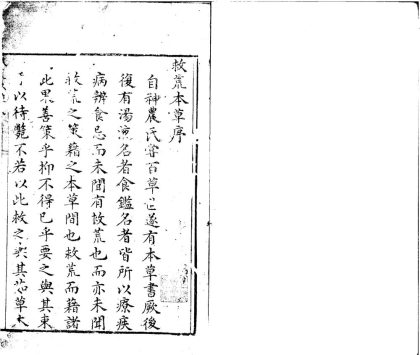 救荒本草序
自神農氏甞百草世遂有本草書厥後
復有湯液名者食鑑名者皆所以療疾
病辨食忌而未聞有救荒也而亦未聞
救荒之策籍之本草間也救荒而籍諸
此果善策乎抑不得已乎要之與其束
手以待斃不若以此救之與其茹草木